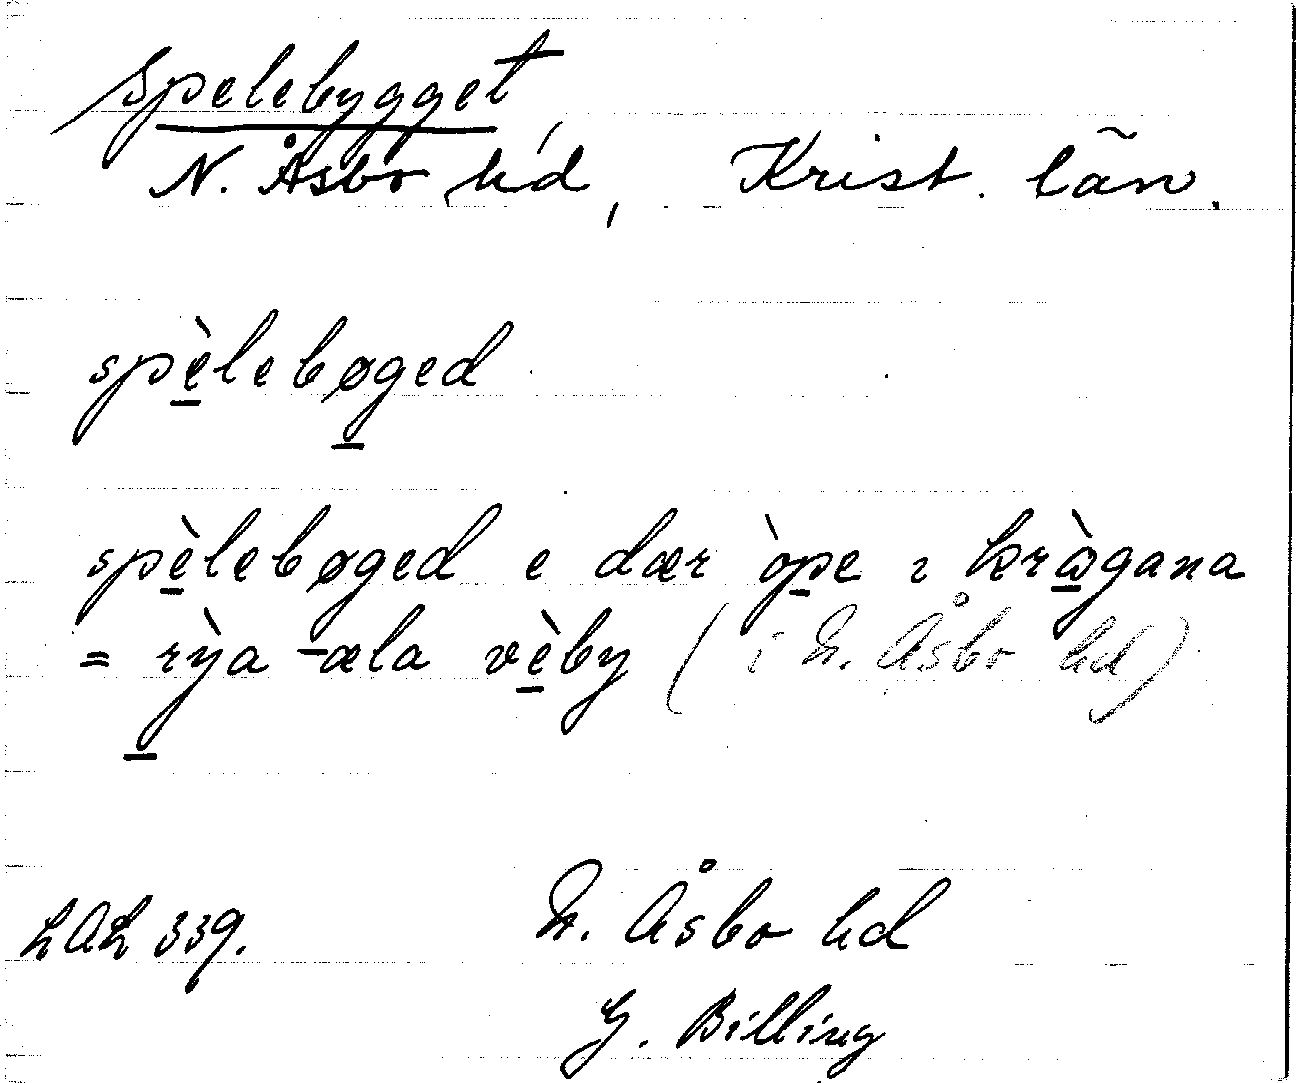 Spelebygget
N. Åsbo hd, Krist. län.
spèlebøged
spèlebøged e dær òpe ı kràgana
= rỳa -æla vèby (i N. Åsbo hd)
LAL 339. N. Åsbo hd
G. Billing